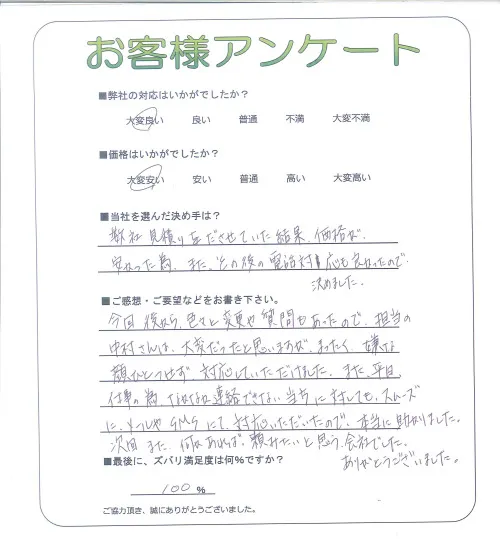 お客様アンケート
■弊社の対応はいかがでしたか？
大変良い 良い 普通 不満 大変不満
■価格はいかがでしたか？
大変安い 安い 普通 高い 大変高い
■当社を選んだ決め手は？
数社見積り出ださせていた結果、価格が、
安かった為、また、その後の電話対応も良かったので、
決めました。
■ご感想・ご要望などをお書き下さい。
今回後から、色々と変更や質問もあったので、担当の
中村さんは、大変だったと思いますが、まったく、嫌な
顔ひとつせず、対応していただけました。また、平日、
仕事の為、なかなか連絡できない当方に対しても、スムーズ
に、メールやSMSにて、対応いただいたので、本当に助かりました。
次回また、何かあれば、頼みたいと思う、会社でした。
ありがとうございました。
■最後に、ズバリ満足度は何％ですか？
100 %
ご協力頂き、誠にありがとうございました。